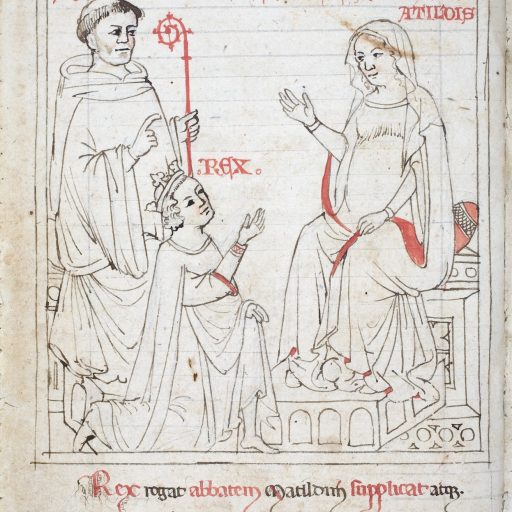 ATILDIS
.REX.
Rex rogat abbatem Matildim supplicat atq.